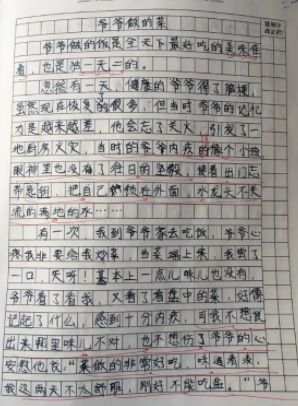 爷爷做的菜
爷爷做的饭是全天下最好吃的美味佳
肴，也是独一无二的。
忽然有一天，健康的爷爷得了脑梗，
虽然现在恢复的很多，但当时爷爷的记忆
力是越来越差，他会忘了关火，引发了一
他厨房火灾，当时的爷爷内疚的像个小孩
眼神里也没有了往日的坚毅，接着出门忘
带钥匙，把自己锁在外面，水龙头不关
流的满地的水……
有一次，我到爷爷家去吃饭，爷爷心
疼我非要给我炒菜，当菜端上来，我尝了
一口，天呀！基本上一点儿味儿也没有，
爷爷看了看我，又看了看盘中的菜，好像
记起了什么，感到十分内疚，可我不想说
出来那里味儿不对，也不想伤了爷爷的心
安慰他说：“菜做的非常好吃，味道
我这两天不太舒服，刚好不能吃盐。”爷